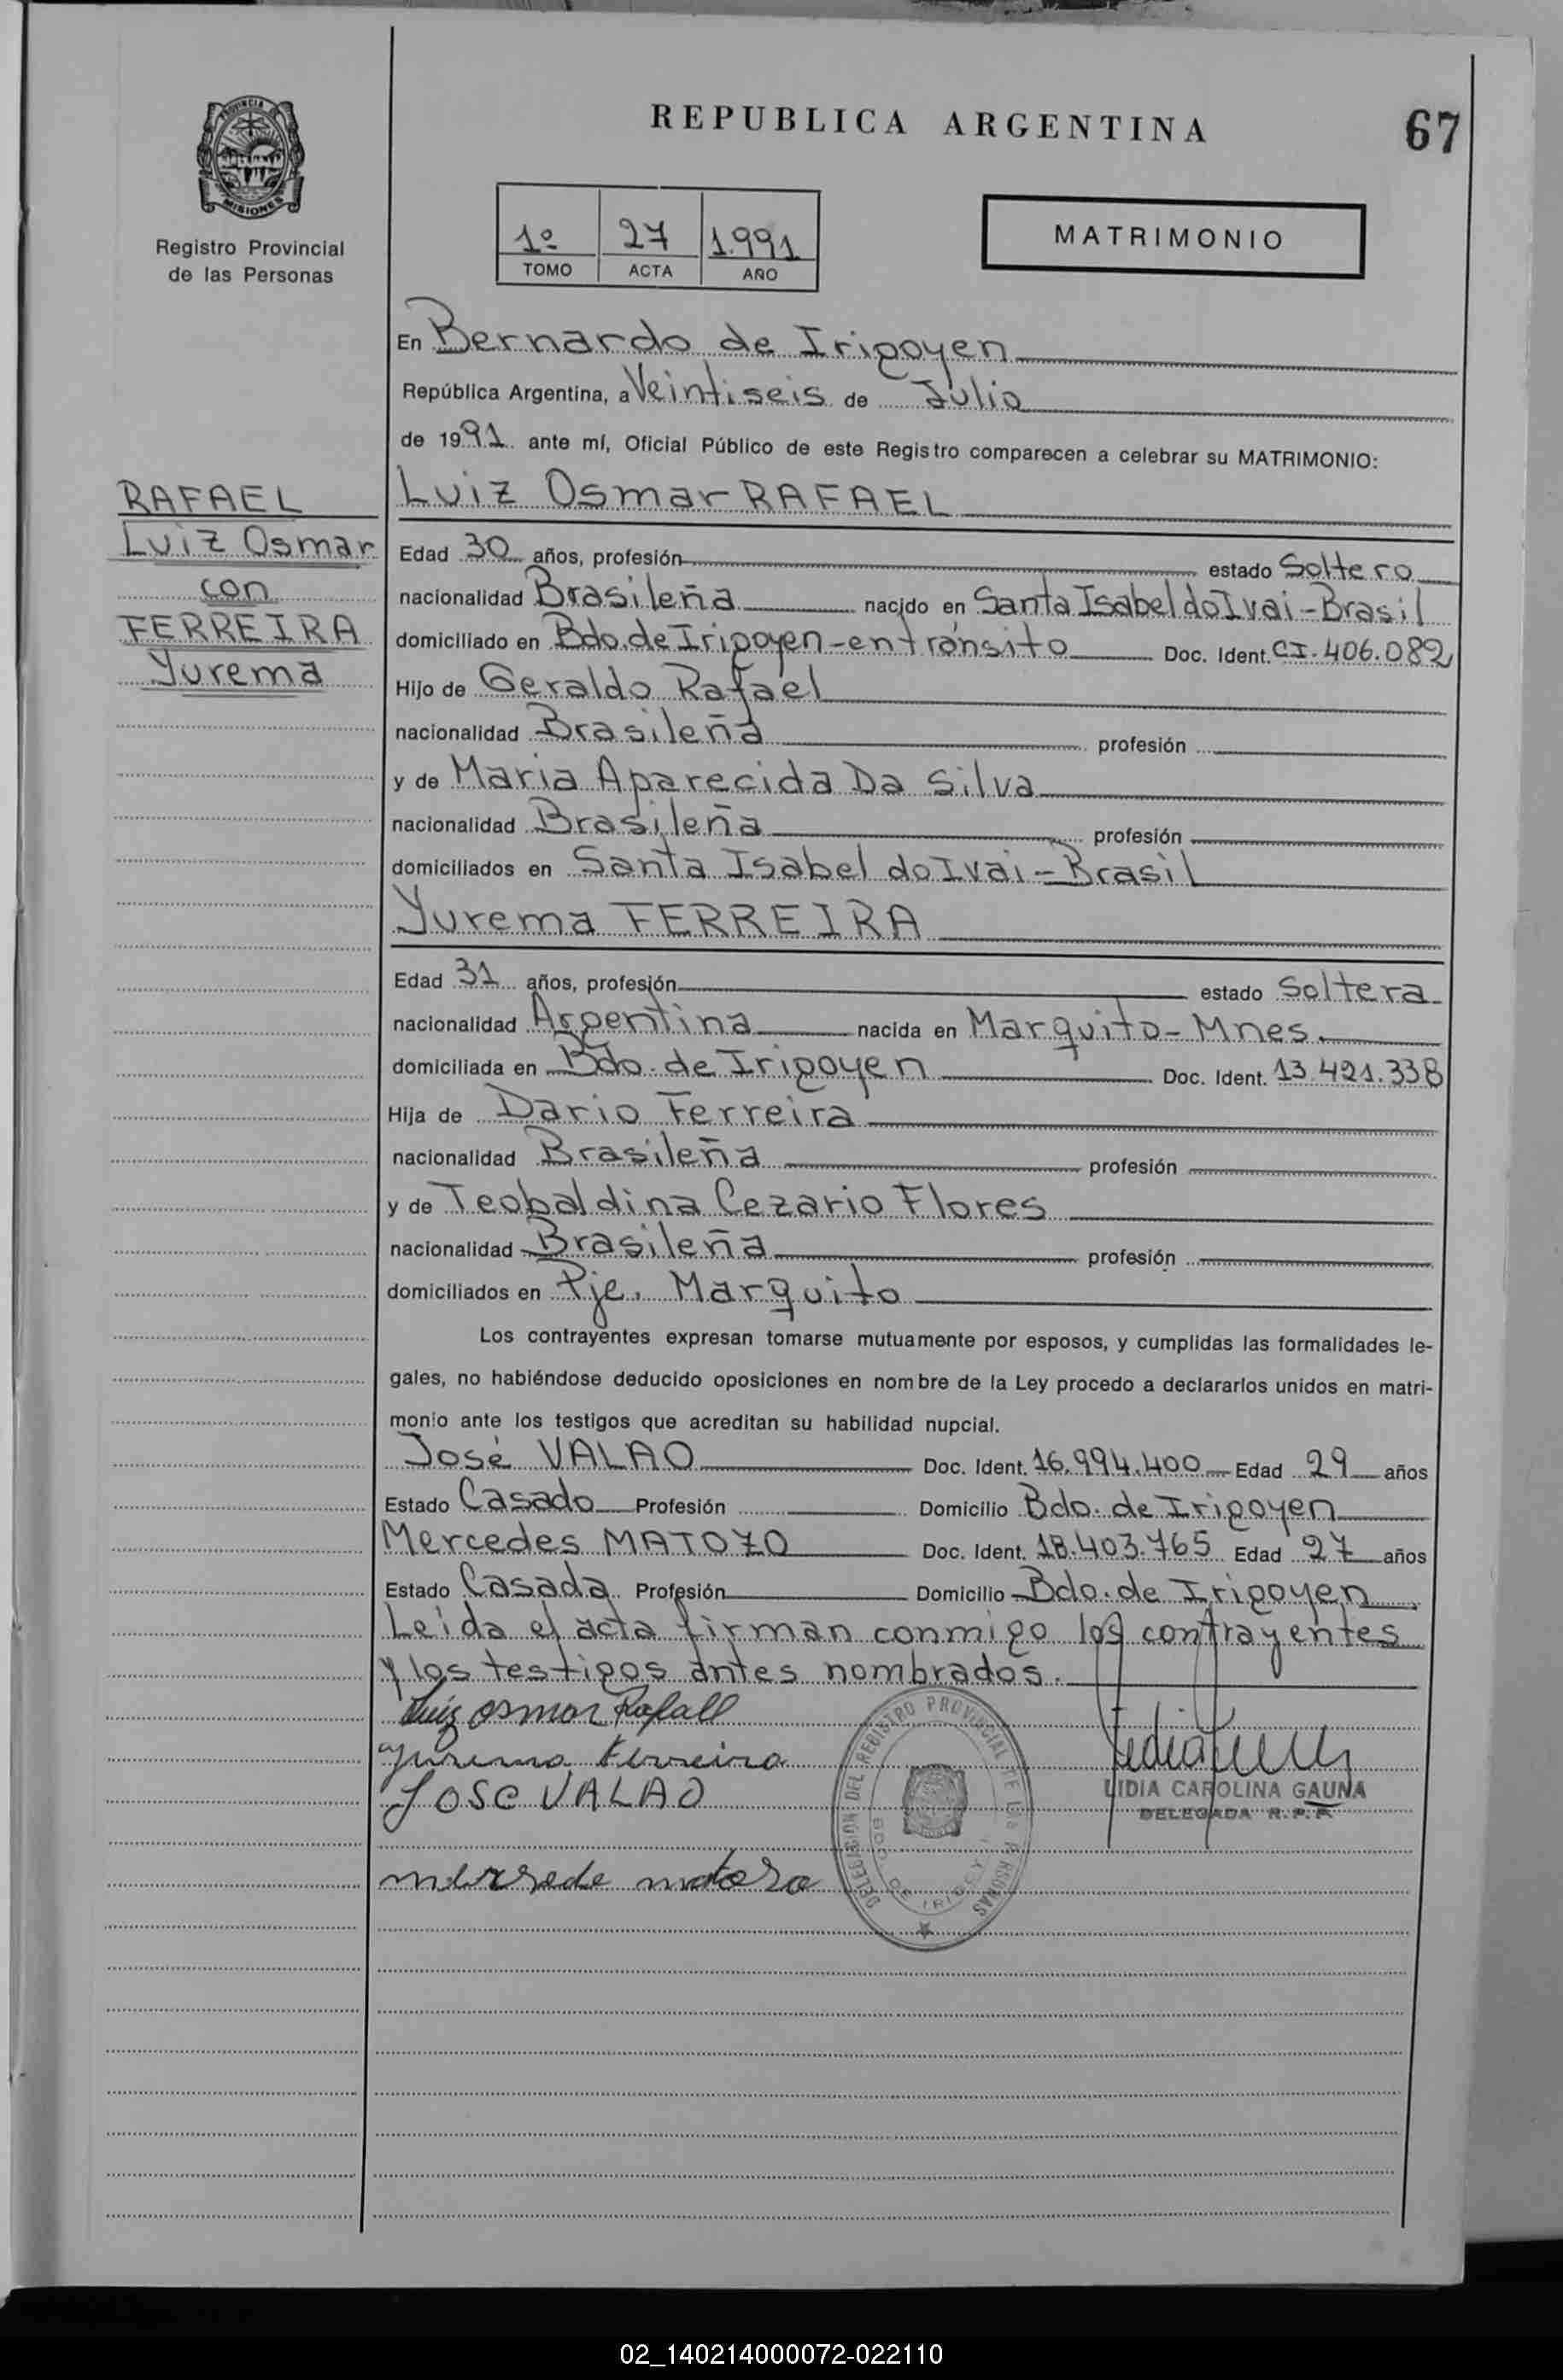 PROVINCIA
MISIONES
Registro Provincial
de las Personas
REPUBLICA ARGENTINA
67
1º 27 1.991
TOMO ACTA AÑO
MATRIMONIO
RAFAEL
Luiz Osmar
con
FERREIRA
Yurema
En Bernardo de Irigoyen
República Argentina, a Veintiseis de Julio
de 1991 ante mí, Oficial Público de este Registro comparecen a celebrar su MATRIMONIO:
Luiz Osmar RAFAEL
Edad 30 años, profesión estado Soltero
nacionalidad Brasileña nacido en Santa Isabel do Ivai - Brasil
domiciliado en Bdo. de Irigoyen - en tránsito Doc. Ident. CI. 406.082
Hijo de Geraldo Rafael
nacionalidad Brasileña profesión
y de Maria Aparecida Da Silva
nacionalidad Brasileña profesión
domiciliados en Santa Isabel do Ivai - Brasil
Yurema FERREIRA
Edad 31 años, profesión estado Soltera
nacionalidad Argentina nacida en Marquito - Mnes.
domiciliada en Bdo. de Irigoyen Doc. Ident. 13.421.338
Hija de Dario Ferreira
nacionalidad Brasileña profesión
y de Teobaldina Cezario Flores
nacionalidad Brasileña profesión
domiciliados en Pje. Marquito
Los contrayentes expresan tomarse mutuamente por esposos, y cumplidas las formalidades le-
gales, no habiéndose deducido oposiciones en nombre de la Ley procedo a declararlos unidos en matri-
monio ante los testigos que acreditan su habilidad nupcial.
José VALAO Doc. Ident. 16.994.400 Edad 29 años
Estado Casado Profesión Domicilio Bdo. de Irigoyen
Mercedes MATOZO Doc. Ident. 18.403.765 Edad 27 años
Estado Casada Profesión Domicilio Bdo. de Irigoyen
Leída el acta firman conmigo los contrayentes
y los testigos antes nombrados.
Luiz osmar Rafaell
Yurema Ferreira
JOSE VALAO
mersede matozo
DELEGACION DEL REGISTRO PROVINCIAL DE LAS PERSONAS
BDO. DE IRIGOYEN
LIDIA CAROLINA GAUNA
DELEGADA R. P. P.
02_140214000072-022110